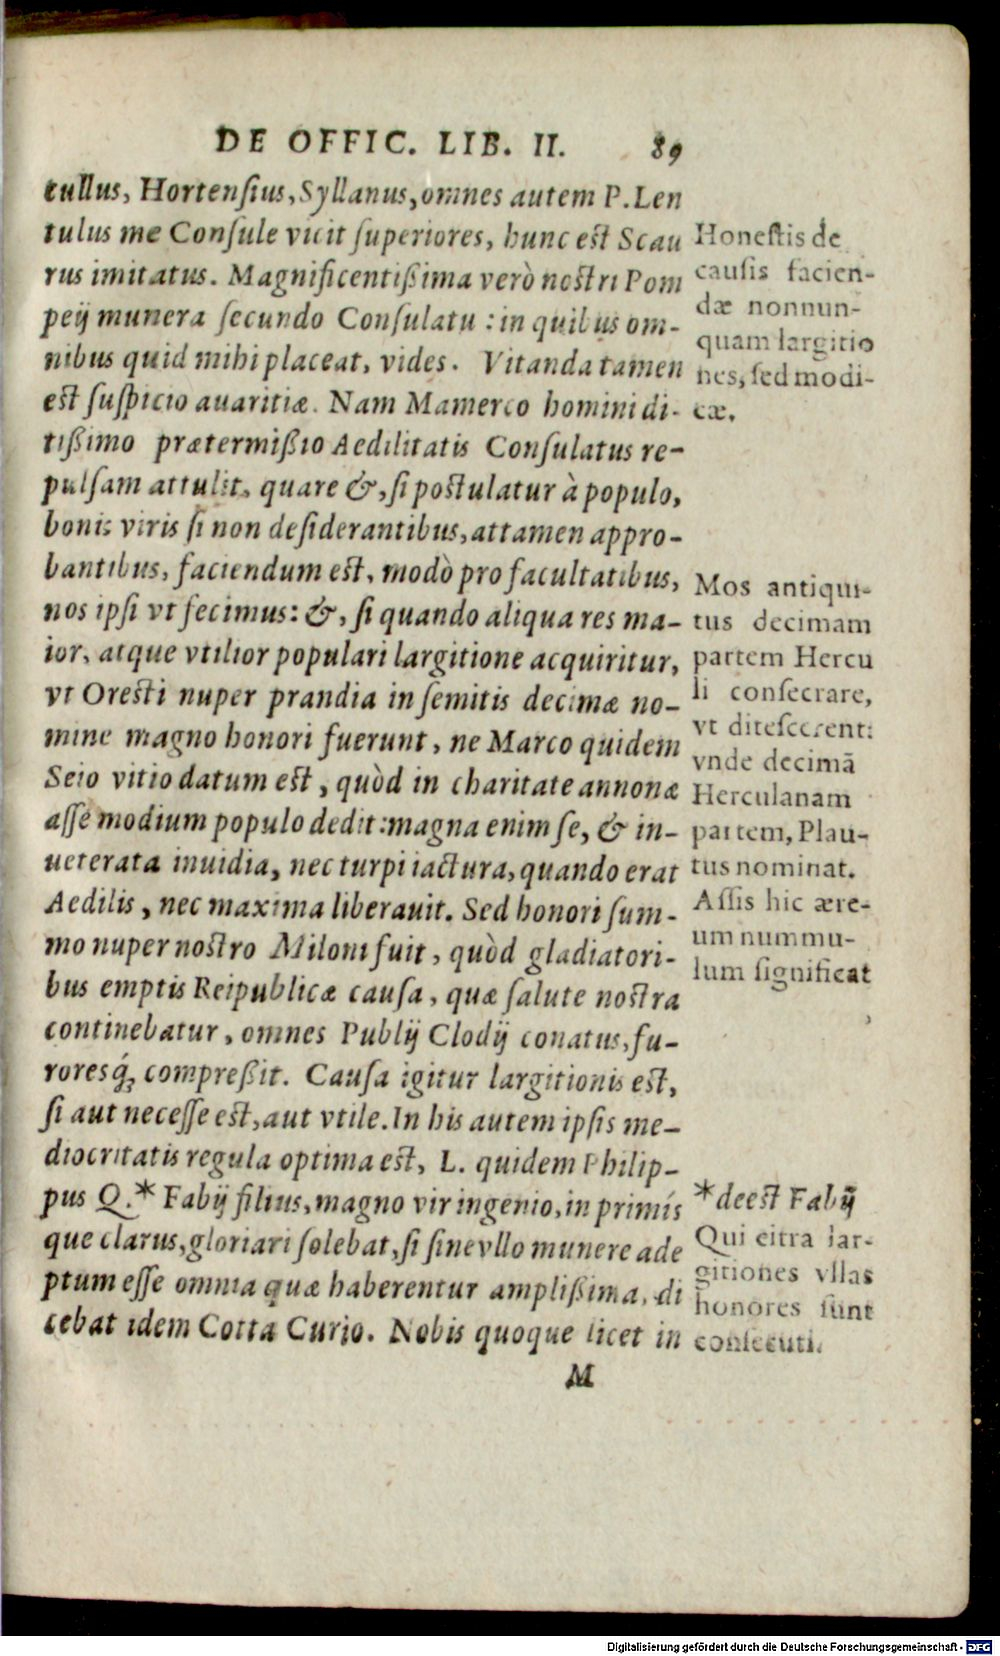 DE OFFIC. LIB. II. 89
tullus, Hortensius, Syllanus, omnes autem P. Len
tulus me Consule vicit superiores, hunc est Scau
rus imitatus. Magnificentißima verò nostri Pom
peij munera secundo Consulatu : in quibus om-
nibus quid mihi placeat, vides. Vitanda tamen
est suspicio auaritiæ. Nam Mamerco homini di-
tißimo prætermißio Aedilitatis Consulatus re-
pulsam attulit, quare &, si postulatur à populo,
bonis viris si non desiderantibus, attamen appro-
bantibus, faciendum est, modò pro facultatibus,
nos ipsi vt fecimus: &, si quando aliqua res ma-
ior, atque vtilior populari largitione acquiritur,
vt Oresti nuper prandia in semitis decimæ no-
mine magno honori fuerunt, ne Marco quidem
Seio vitio datum est, quòd in charitate annonæ
asse modium populo dedit: magna enim se, & in-
ueterata inuidia, nec turpi iactura, quando erat
Aedilis, nec maxima liberauit. Sed honori sum-
mo nuper nostro Miloni fuit, quòd gladiatori-
bus emptis Reipublicæ causa, quæ salute nostra
continebatur, omnes Publij Clodij conatus, fu-
roresq́; compreßit. Causa igitur largitionis est,
si aut necesse est, aut vtile. In his autem ipsis me-
diocritatis regula optima est, L. quidem Philip-
pus Q.* Fabij filius, magno vir ingenio, in primís
que clarus, gloriari solebat, si sine vllo munere ade
ptum esse omnia quæ haberentur amplißima, di
cebat idem Cotta Curio. Nobis quoque licet in
M
Honestis de
causis facien-
dæ nonnun-
quam largitio
nes, sed modi-
cæ.
Mos antiqui-
tus decimam
partem Hercu
li consecrare,
vt ditescerent:
vnde decimā
Herculanam
partem, Plau-
tus nominat.
Assis hic ære-
um nummu-
lum significat
*deest Fabij
Qui citra lar-
gitiones vllas
honores sunt
consecuti.
Digitalisierung gefördert durch die Deutsche Forschungsgemeinschaft - DFG